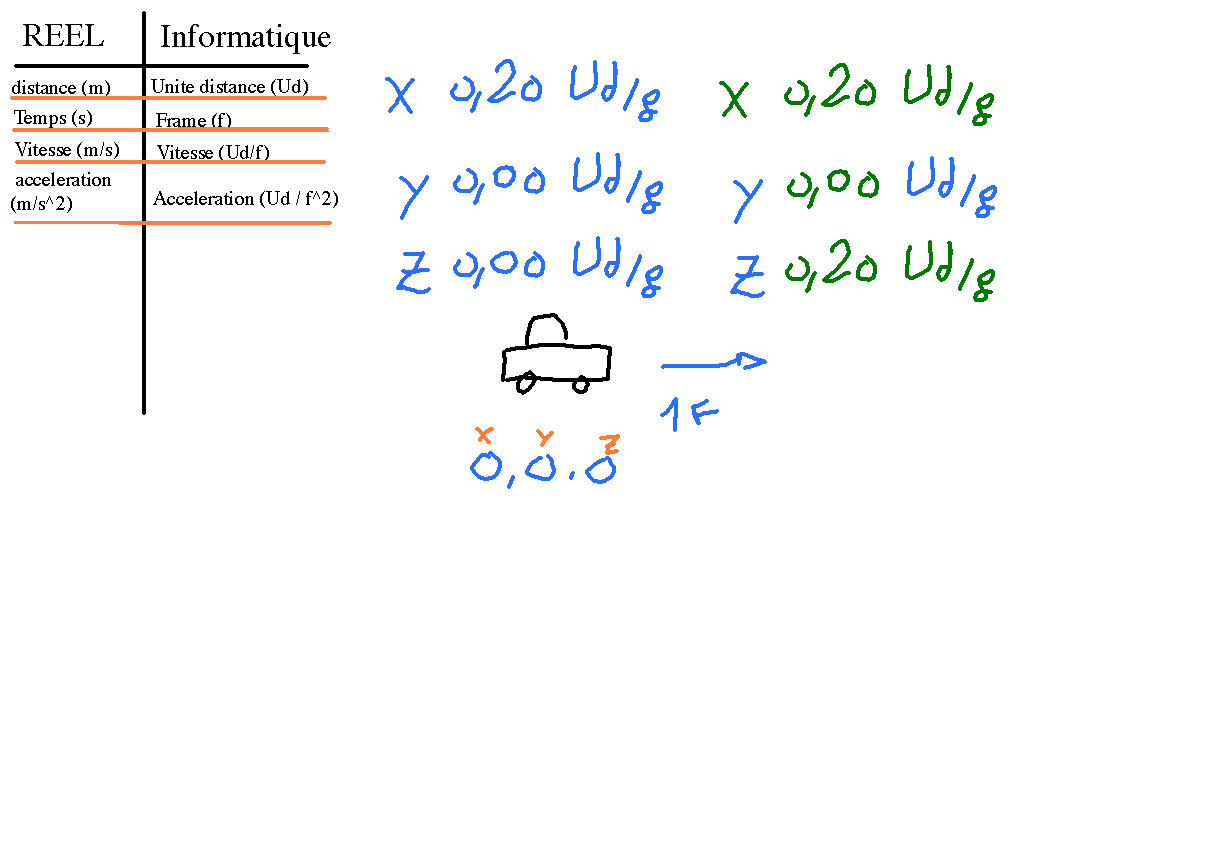 REEL Informatique
distance (m) Unite distance (Ud)
Temps (s) Frame (f)
Vitesse (m/s) Vitesse (Ud/f)
acceleration
(m/s^2) Acceleration (Ud / f^2)
X 0,20 Ud/g
Y 0,00 Ud/g
Z 0,00 Ud/g
X 0,20 Ud/g
Y 0,00 Ud/g
Z 0,20 Ud/g
1F
X Y Z
0,0.0